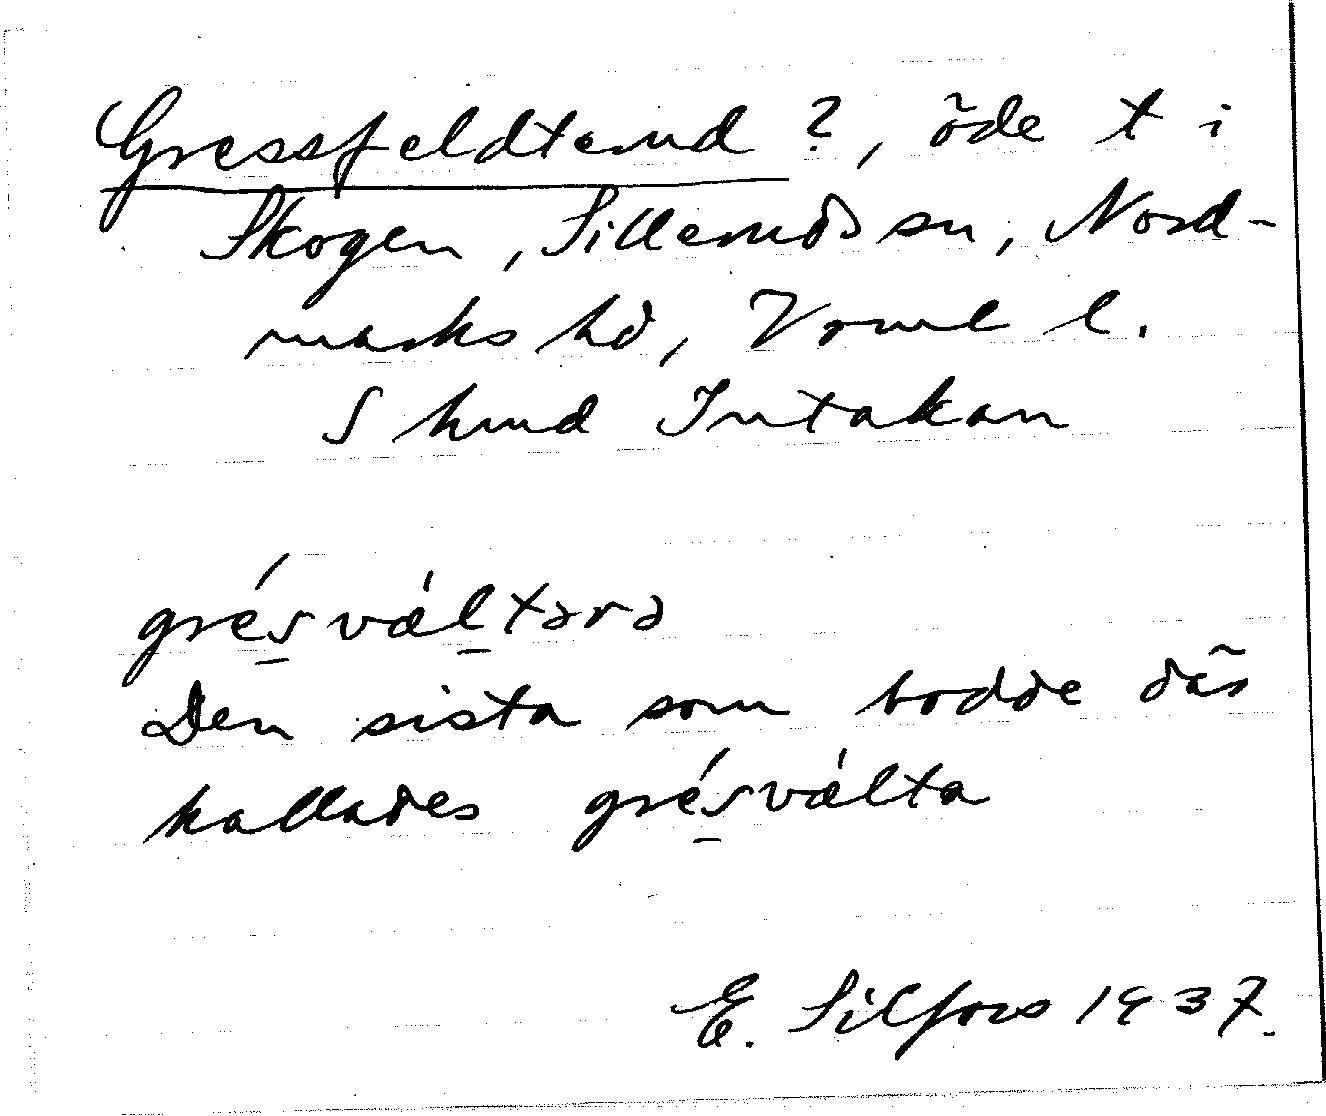 Gressfeldterud ?, öde t i
Skogen, Sillerudss sn, Nord-
marks hd, Vrml l.
S hmd Intakan
grésvä́ltərə
Den sista som bodde där
kallades grésvä́lta
E. Silfors 1937.